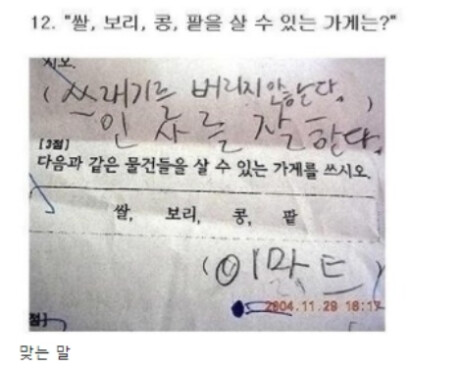 12. "쌀, 보리, 콩, 팥을 살 수 있는 가게는?"
시오.
( 쓰레기를 버리지 안는다. )
인사를 잘한다.
[3점]
다음과 같은 물건들을 살 수 있는 가게를 쓰시오.
쌀, 보리, 콩, 팥
( 이마트 )
2004.11.29 16:17
점]
맞는 말